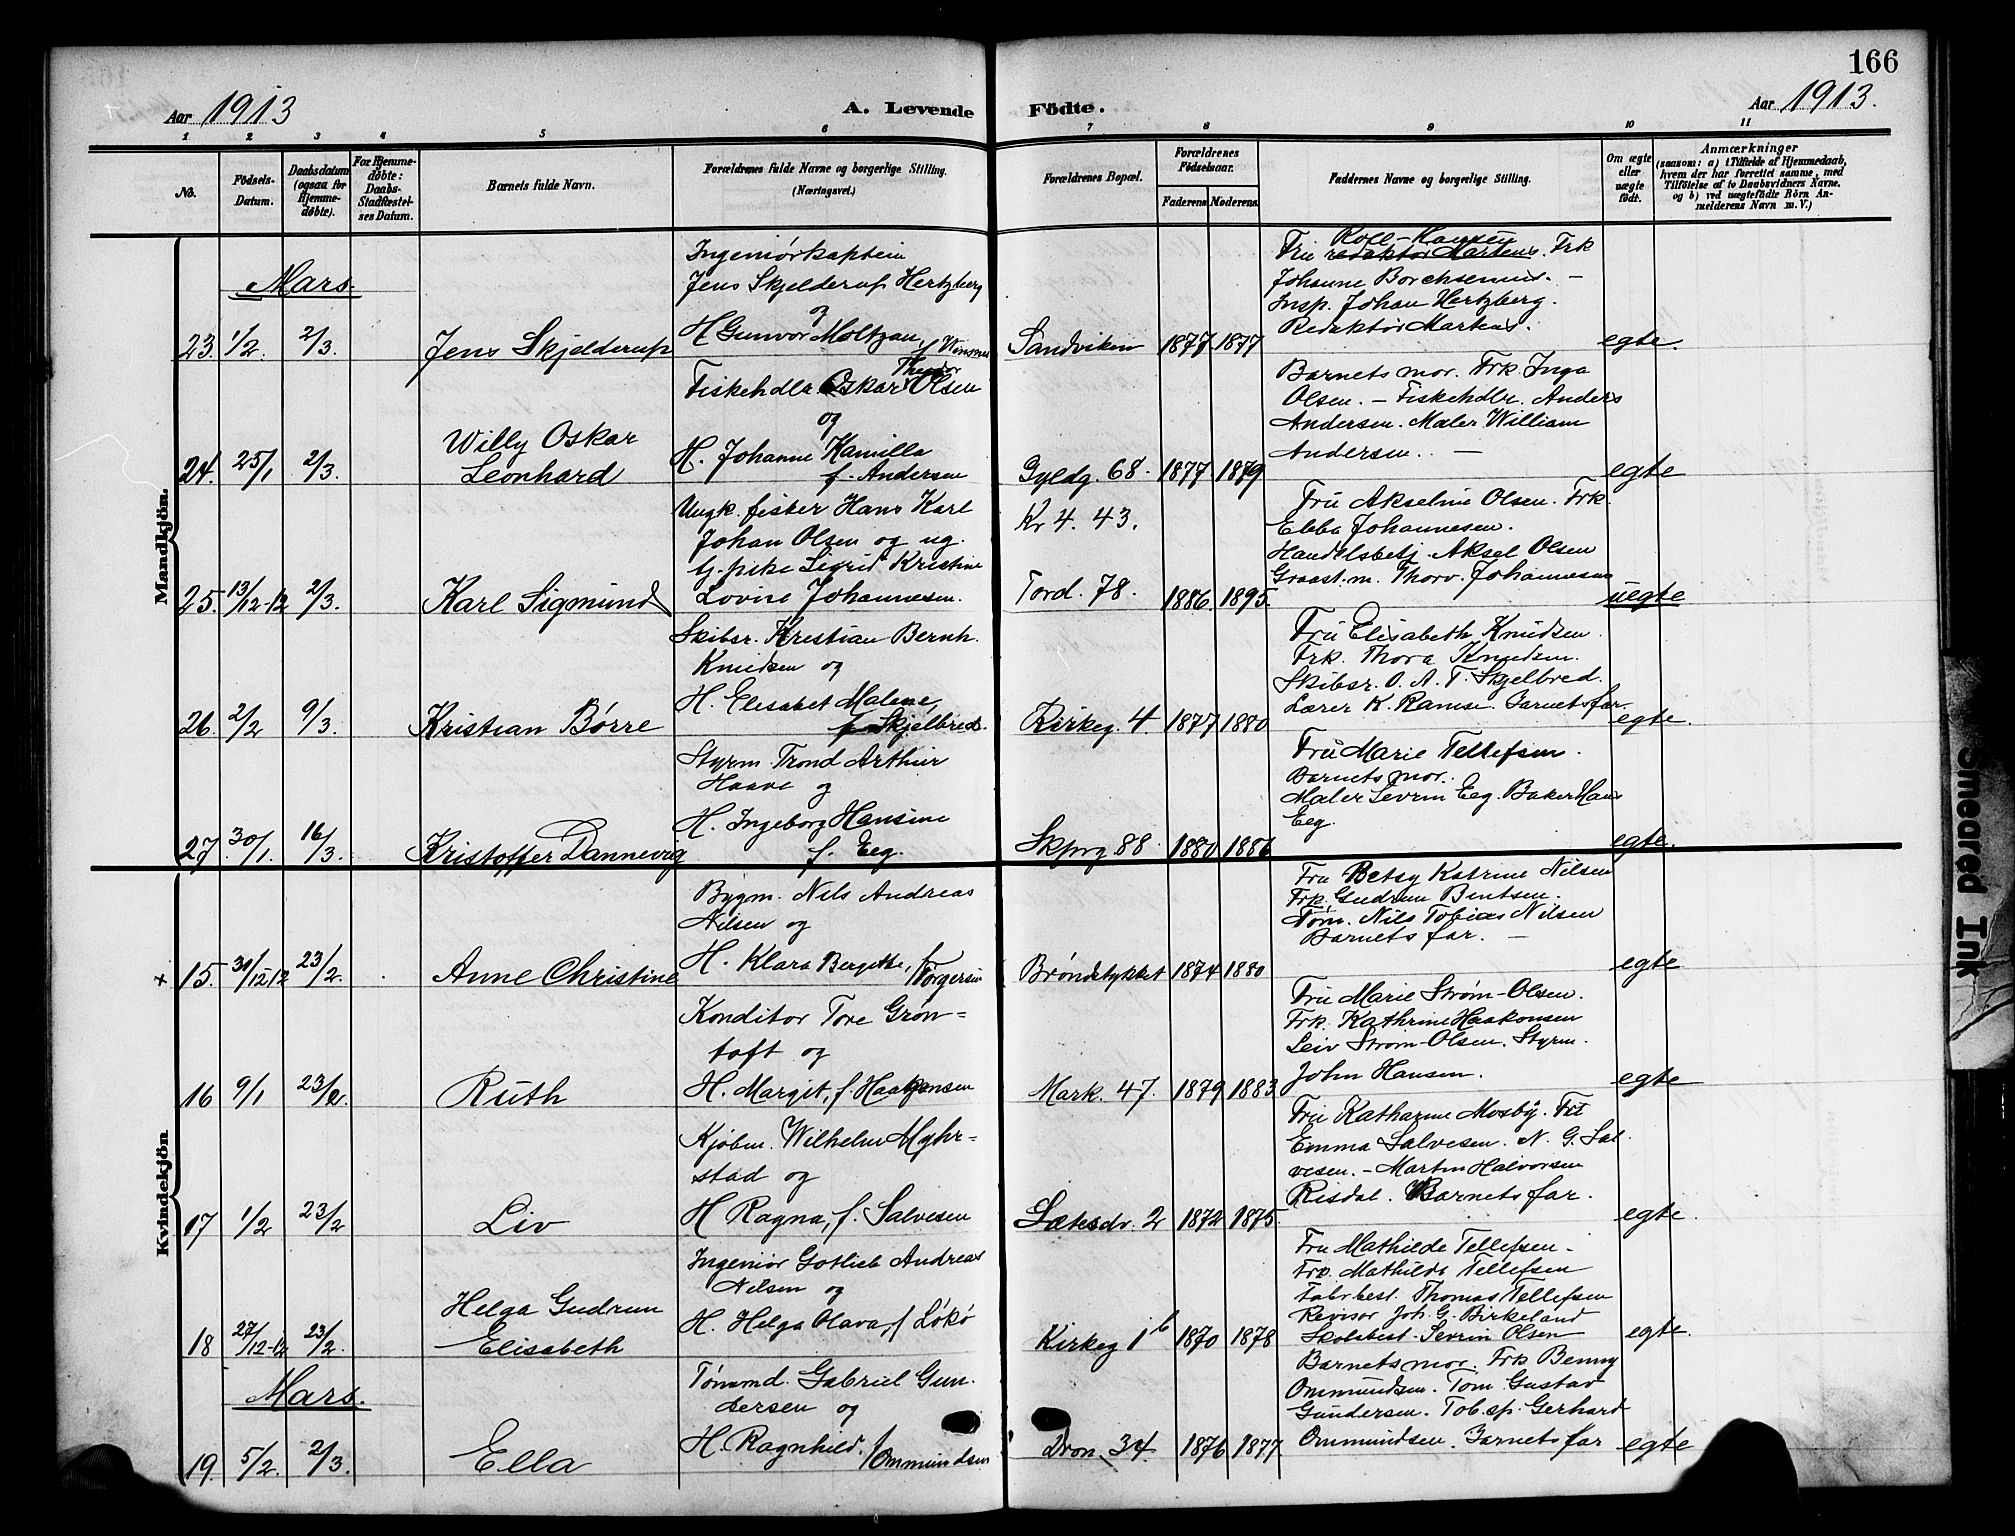 166
Aar 1913
A. Levende Födte.
Aar 1913.
1 2 3 4 5 6 7 8 9 10 11
No.
Födsels-Datum.
Daabsdatum (ogsaa for Hjemme-døbte).
For Hjemme-døbte: Daabs-Stadfæstel-ses Datum.
Barnets fulde Navn.
Forældrenes fulde Navne og borgerlige Stilling. (Næringsvei.)
Forældrenes Bopæl.
Forældrenes Födselsaar.
Faderens Moderens
Faddernes Navne og borgerlige Stilling.
Om ægte eller uægte födt.
Anmærkninger
(saasom: a) i Tilfælde af Hjemmedaab,
hvem der har forrettet samme, med
Tilföielse af to Daabsvidners Navne.
og b) ved uægtefödte Börn An-
melderens Navn m. V.)
Mandkjön.
Mars.
23. 1/2. 2/3. Jens Skjelderup
Ingeniørkaptein
Jens Skjelderup Hertzberg
og
H Gunvor Moltzau, f Winsnes
Sandviken 1877 1877
Roll-Hansen
Fru redaktør Martens. Frk
Johanne Borchsenius. –
Insp. Johan Hertzberg.
Redaktør Martens.
egte.
24. 25/1 2/3. Willy Oskar
Leonhard
Theodor
Fiskehdlr. Oskar Olsen
og
H. Johanne Kamilla
f. Andersen
Gyldg. 68. 1877 1879
Barnets mor. Frk. Inga
Olsen. – Fiskehdlr. Anders
Andersen. Maler William
Andersen. –
egte
25. 13/12-12 2/3. Karl Sigmund
Ungk. fisker Hans Karl
Johan Olsen og ug.
tj. pike Sigrid Kristine
Lovise Johannesen.
Kr 4. 43.
Tord. 78. 1886 1895.
Fru Akseline Olsen. Frk.
Ebba Johannesen.
Handelsbetj. Aksel Olsen
Graast.m. Thorv. Johannesen
uegte
26. 2/2 9/3. Kristian Børre
Skibsr. Kristian Bernh.
Knudsen og
H. Elisabet Malene,
f. Skjelbred.
Kirkeg. 4 1877 1880
Fru Elisabeth Knudsen.
Frk. Thora Knudsen.
Skibsr. O. A. T. Skjelbred.
Lærer K. Ramse. Barnets far.
egte.
27. 30/1. 16/3. Kristoffer Dannevig
Styrm. Trond Arthur
Haave og
H. Ingeborg Hansine
f. Eeg.
Skprg 88 1880 1886
Fru Marie Tellefsen.
Barnets mor.
Maler Sevrin Eeg. Baker Hans
Eeg.
egte.
Kvindekjön
+ 15. 31/12 12 23/2. Anne Christine
Bygm. Nils Andreas
Nilsen og
H. Klara Bergitte, f Torgersen
Brøndstykket 1874 1880
Fru Betsy Katrine Nilsen
Frk. Gudrun Bentsen.
Tøm. Nils Tobias Nilsen
Barnets far. –
egte
16 9/1 23/2. Ruth
Konditor Tore Grøn=
toft og
H. Margit, f. Haakonsen
Mark. 47. 1879 1883
Fru Marie Strøm-Olsen.
Frk. Kathrine Haakonsen
Leiv Strøm-Olsen. Styrm.
John Hansen.
egte
17 1/2 23/2 Liv
Kjøbm. Wilhelm Myhr=
stad og
H Ragna, f. Salvesen
Sætesdr. 2 1872 1875.
Fru Katharine Mosby.
Emma Salvesen. N. G. Sal
vesen. – Martin Halvorsen
Risdal. Barnets far.
egte.
18 27/12-12 23/2. Helga Gudrun
Elisabeth
Ingeniør Gotlieb Andreas
Nilsen og
H. Helga Olava, f Løkø
Kirkeg 1b 1870 1878
Fru Mathilde Tellefsen.
Frk. Mathilde Tellefsen
Fabrbest. Thomas Tellefsen
Revisor Joh. G. Birkeland
Skolebest. Sevrin Olsen
egte.
Mars.
19. 5/2. 2/3. Ella
Tømmd. Gabriel Gun.
dersen og
H. Ragnhild. f Ommundsen
Dron. 34. 1876 1877.
Barnets mor. Frk Benny
Ommundsen. Tøm. Gustav
Gundersen. Tob.sp. Gerhard
Ommundsen. Barnets far
egte
Smeared Ink